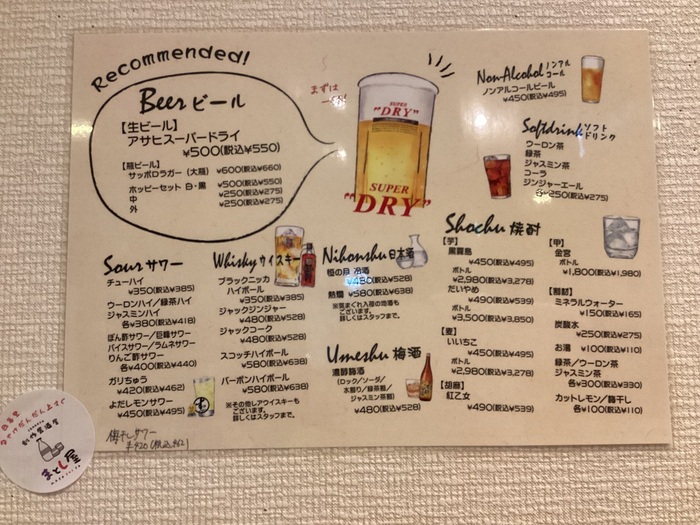 Recommended!
Beer ビール
【生ビール】
アサヒスーパードライ
¥500(税込¥550)
【瓶ビール】
サッポロラガー (大瓶) ¥600(税込¥660)
ホッピーセット 白・黒 ¥500(税込¥550)
中 ¥250(税込¥275)
外 ¥250(税込¥275)
まずは
SUPER
"DRY"
SUPER
"DRY"
Non-Alcohol ノンアルコール
ノンアルコールビール
¥450(税込¥495)
Softdrink ソフトドリンク
ウーロン茶
緑茶
ジャスミン茶
コーラ
ジンジャーエール
各¥250(税込¥275)
Sour サワー
チューハイ
¥350(税込¥385)
ウーロンハイ/緑茶ハイ
ジャスミンハイ
各¥380(税込¥418)
ぽん酢サワー/巨峰サワー
バイスサワー/ラムネサワー
りんご酢サワー
各¥400(税込¥440)
ガリちゅう
¥420(税込¥462)
よだしモンサワー
¥450(税込¥495)
梅干しサワー
¥420(税込462)
Whisky ウイスキー
ブラックニッカ
ハイボール
¥350(税込¥385)
ジャックジンジャー
¥480(税込¥528)
ジャックコーク
¥480(税込¥528)
スコッチハイボール
¥580(税込¥638)
バーボンハイボール
¥580(税込¥638)
※その他しアウイスキーも
ございます。
詳しくはスタッフまで。
Nihonshu 日本酒
恒の月 冷酒
¥480(税込¥528)
熱燗 ¥580(税込¥638)
ございます。
詳しくはスタッフまで。
Umeshu 梅酒
濃醇梅酒
(ロック/ソーダ/
水割り/緑茶割/
ジャスミン茶割)
¥480(税込¥528)
Shochu 焼酎
【芋】
黒霧島
¥450(税込¥495)
ボトル
¥2,980(税込¥3,278)
だいやめ
¥490(税込¥539)
ボトル
¥3,500(税込¥3,850)
【麦】
いいちこ
¥450(税込¥495)
ボトル
¥2,980(税込¥3,278)
【胡麻】
紅乙女
¥490(税込¥539)
【甲】
金宮
ボトル
¥1,800(税込¥1,980)
【割材】
ミネラルウォーター
¥150(税込¥165)
炭酸水
¥250(税込¥275)
お湯 ¥100(税込¥110)
緑茶/ウーロン茶
ジャスミン茶
各¥300(税込¥330)
カットレモン/梅干し
各¥100(税込¥110)
創作居酒屋
まとし屋